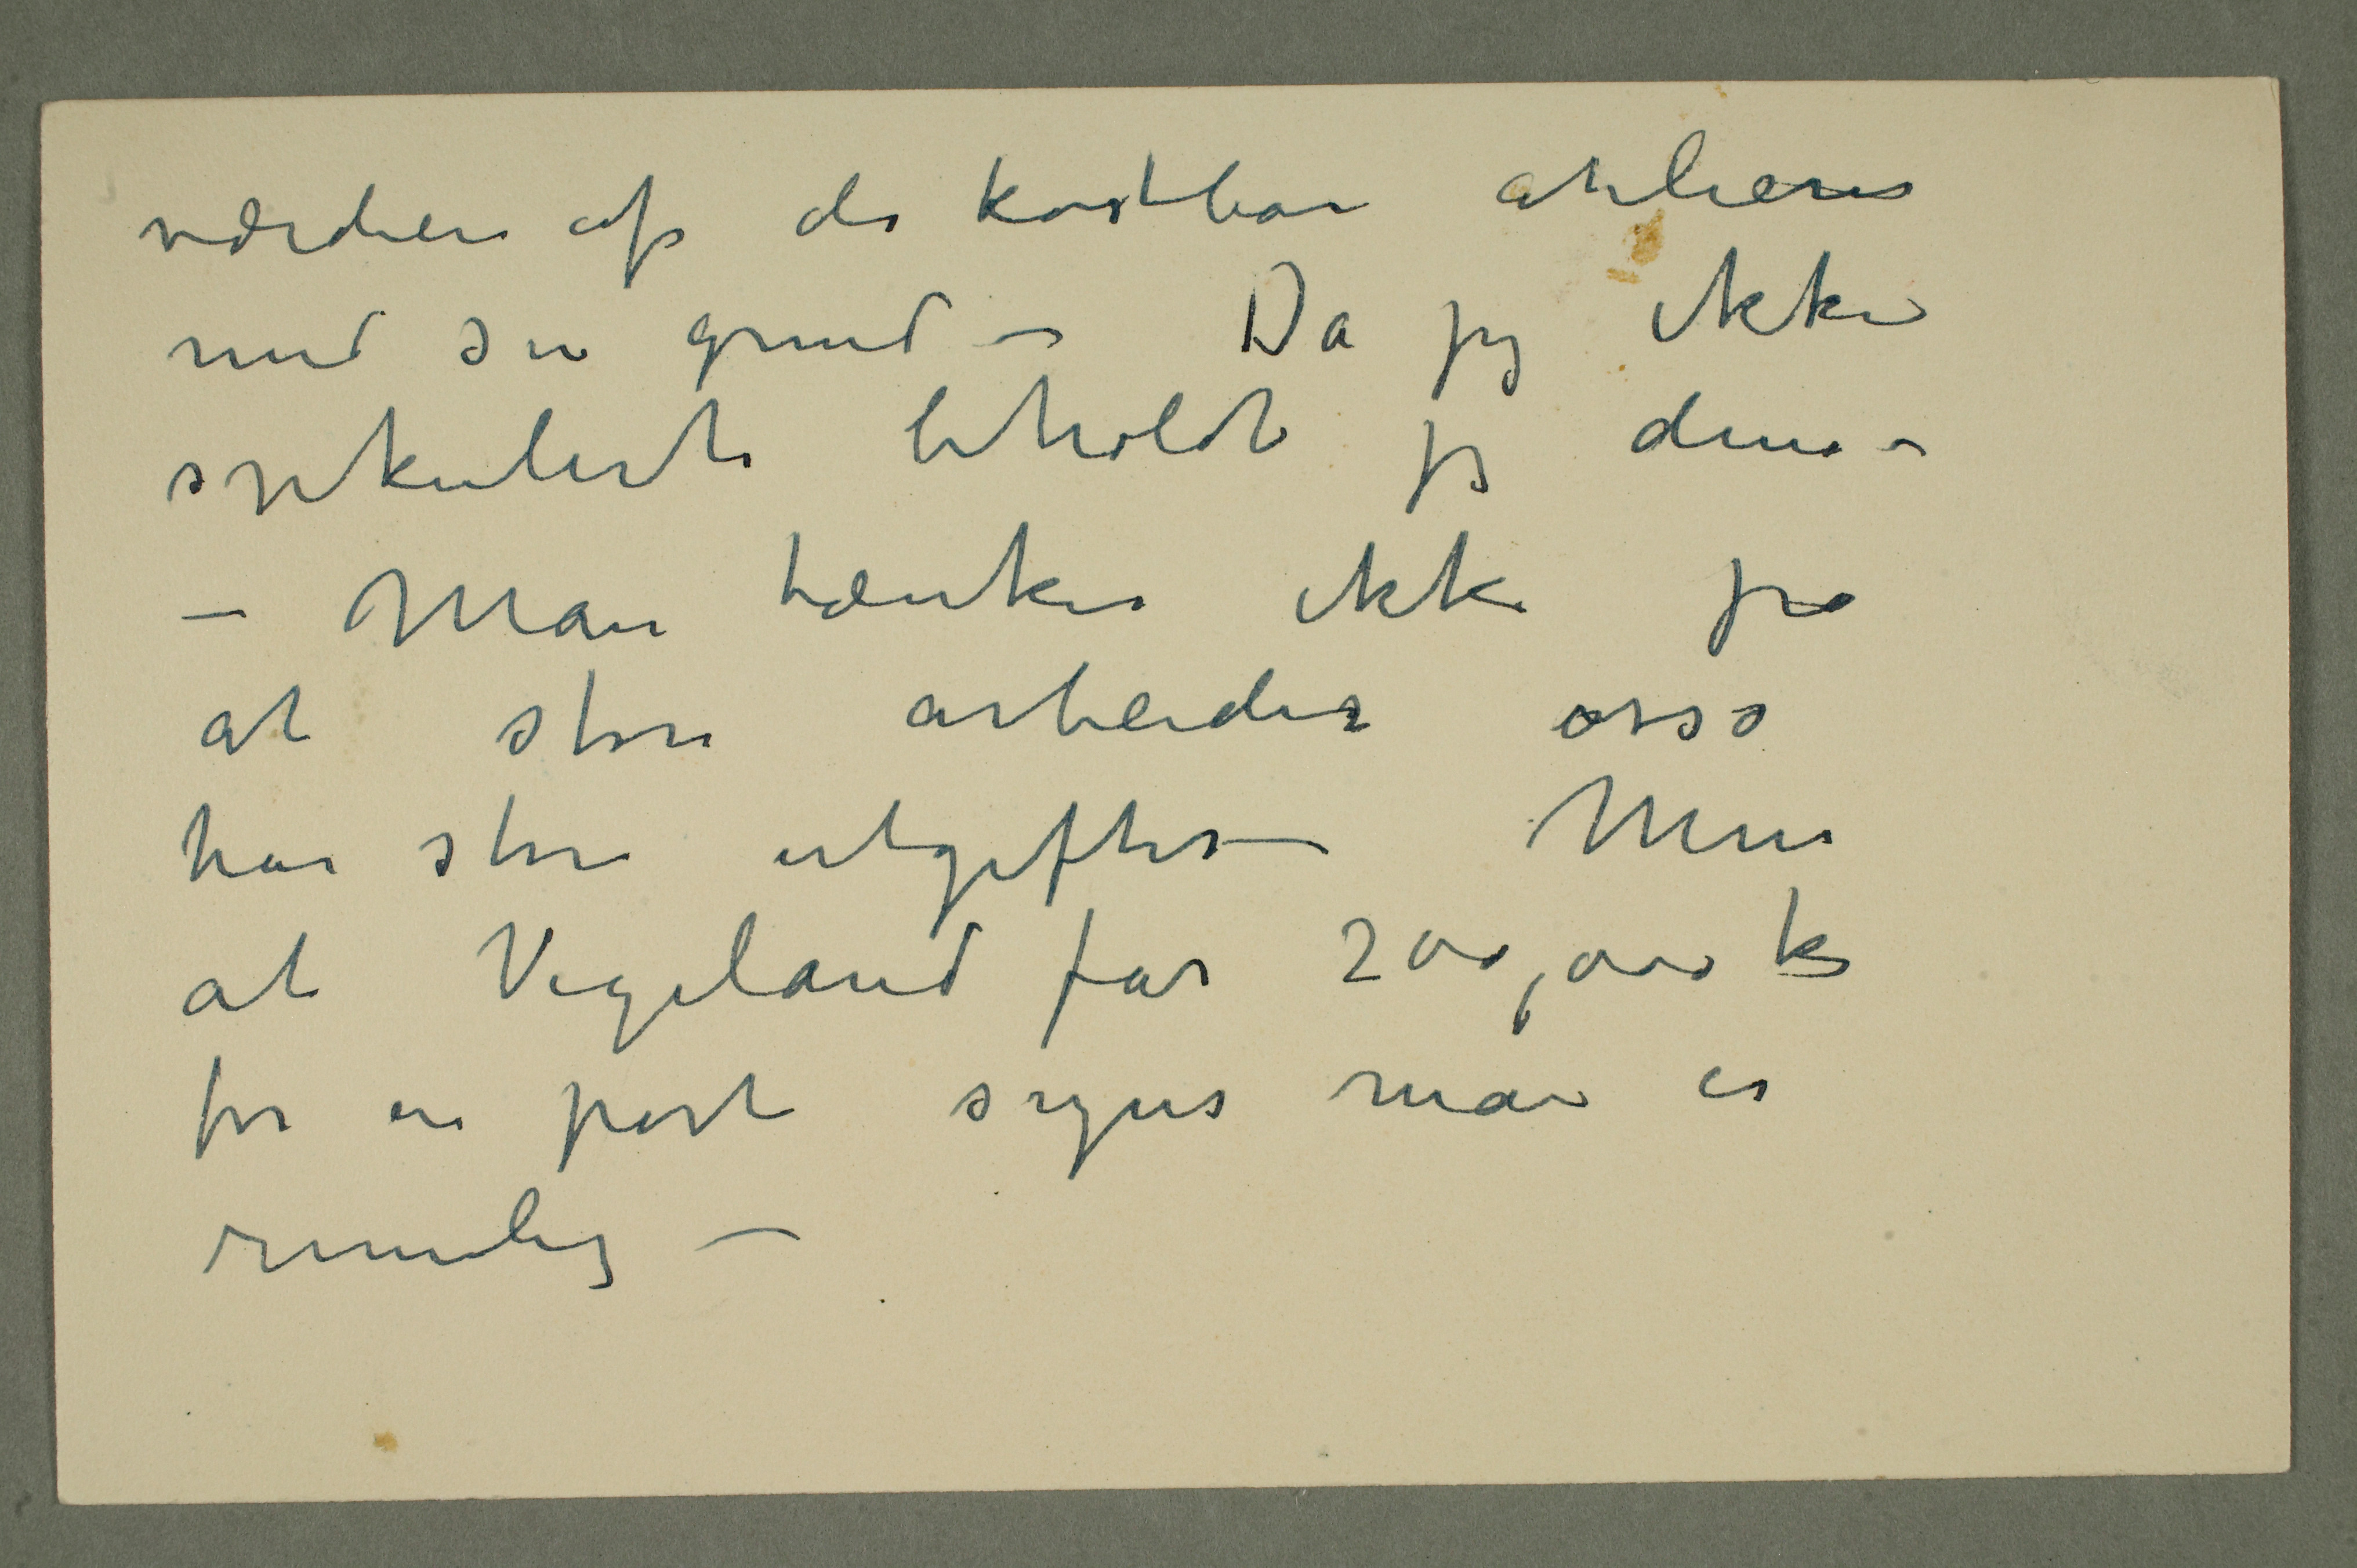 værdien af de kostbare atelieres
med sin grund – Da jeg ikke
spekulerte beholdt jeg dem –
– Man tænker ikke på
at store arbeider også
har store utgifter – Men
at Vigeland får 200,000 kr
for en port synes man er
rimelig –